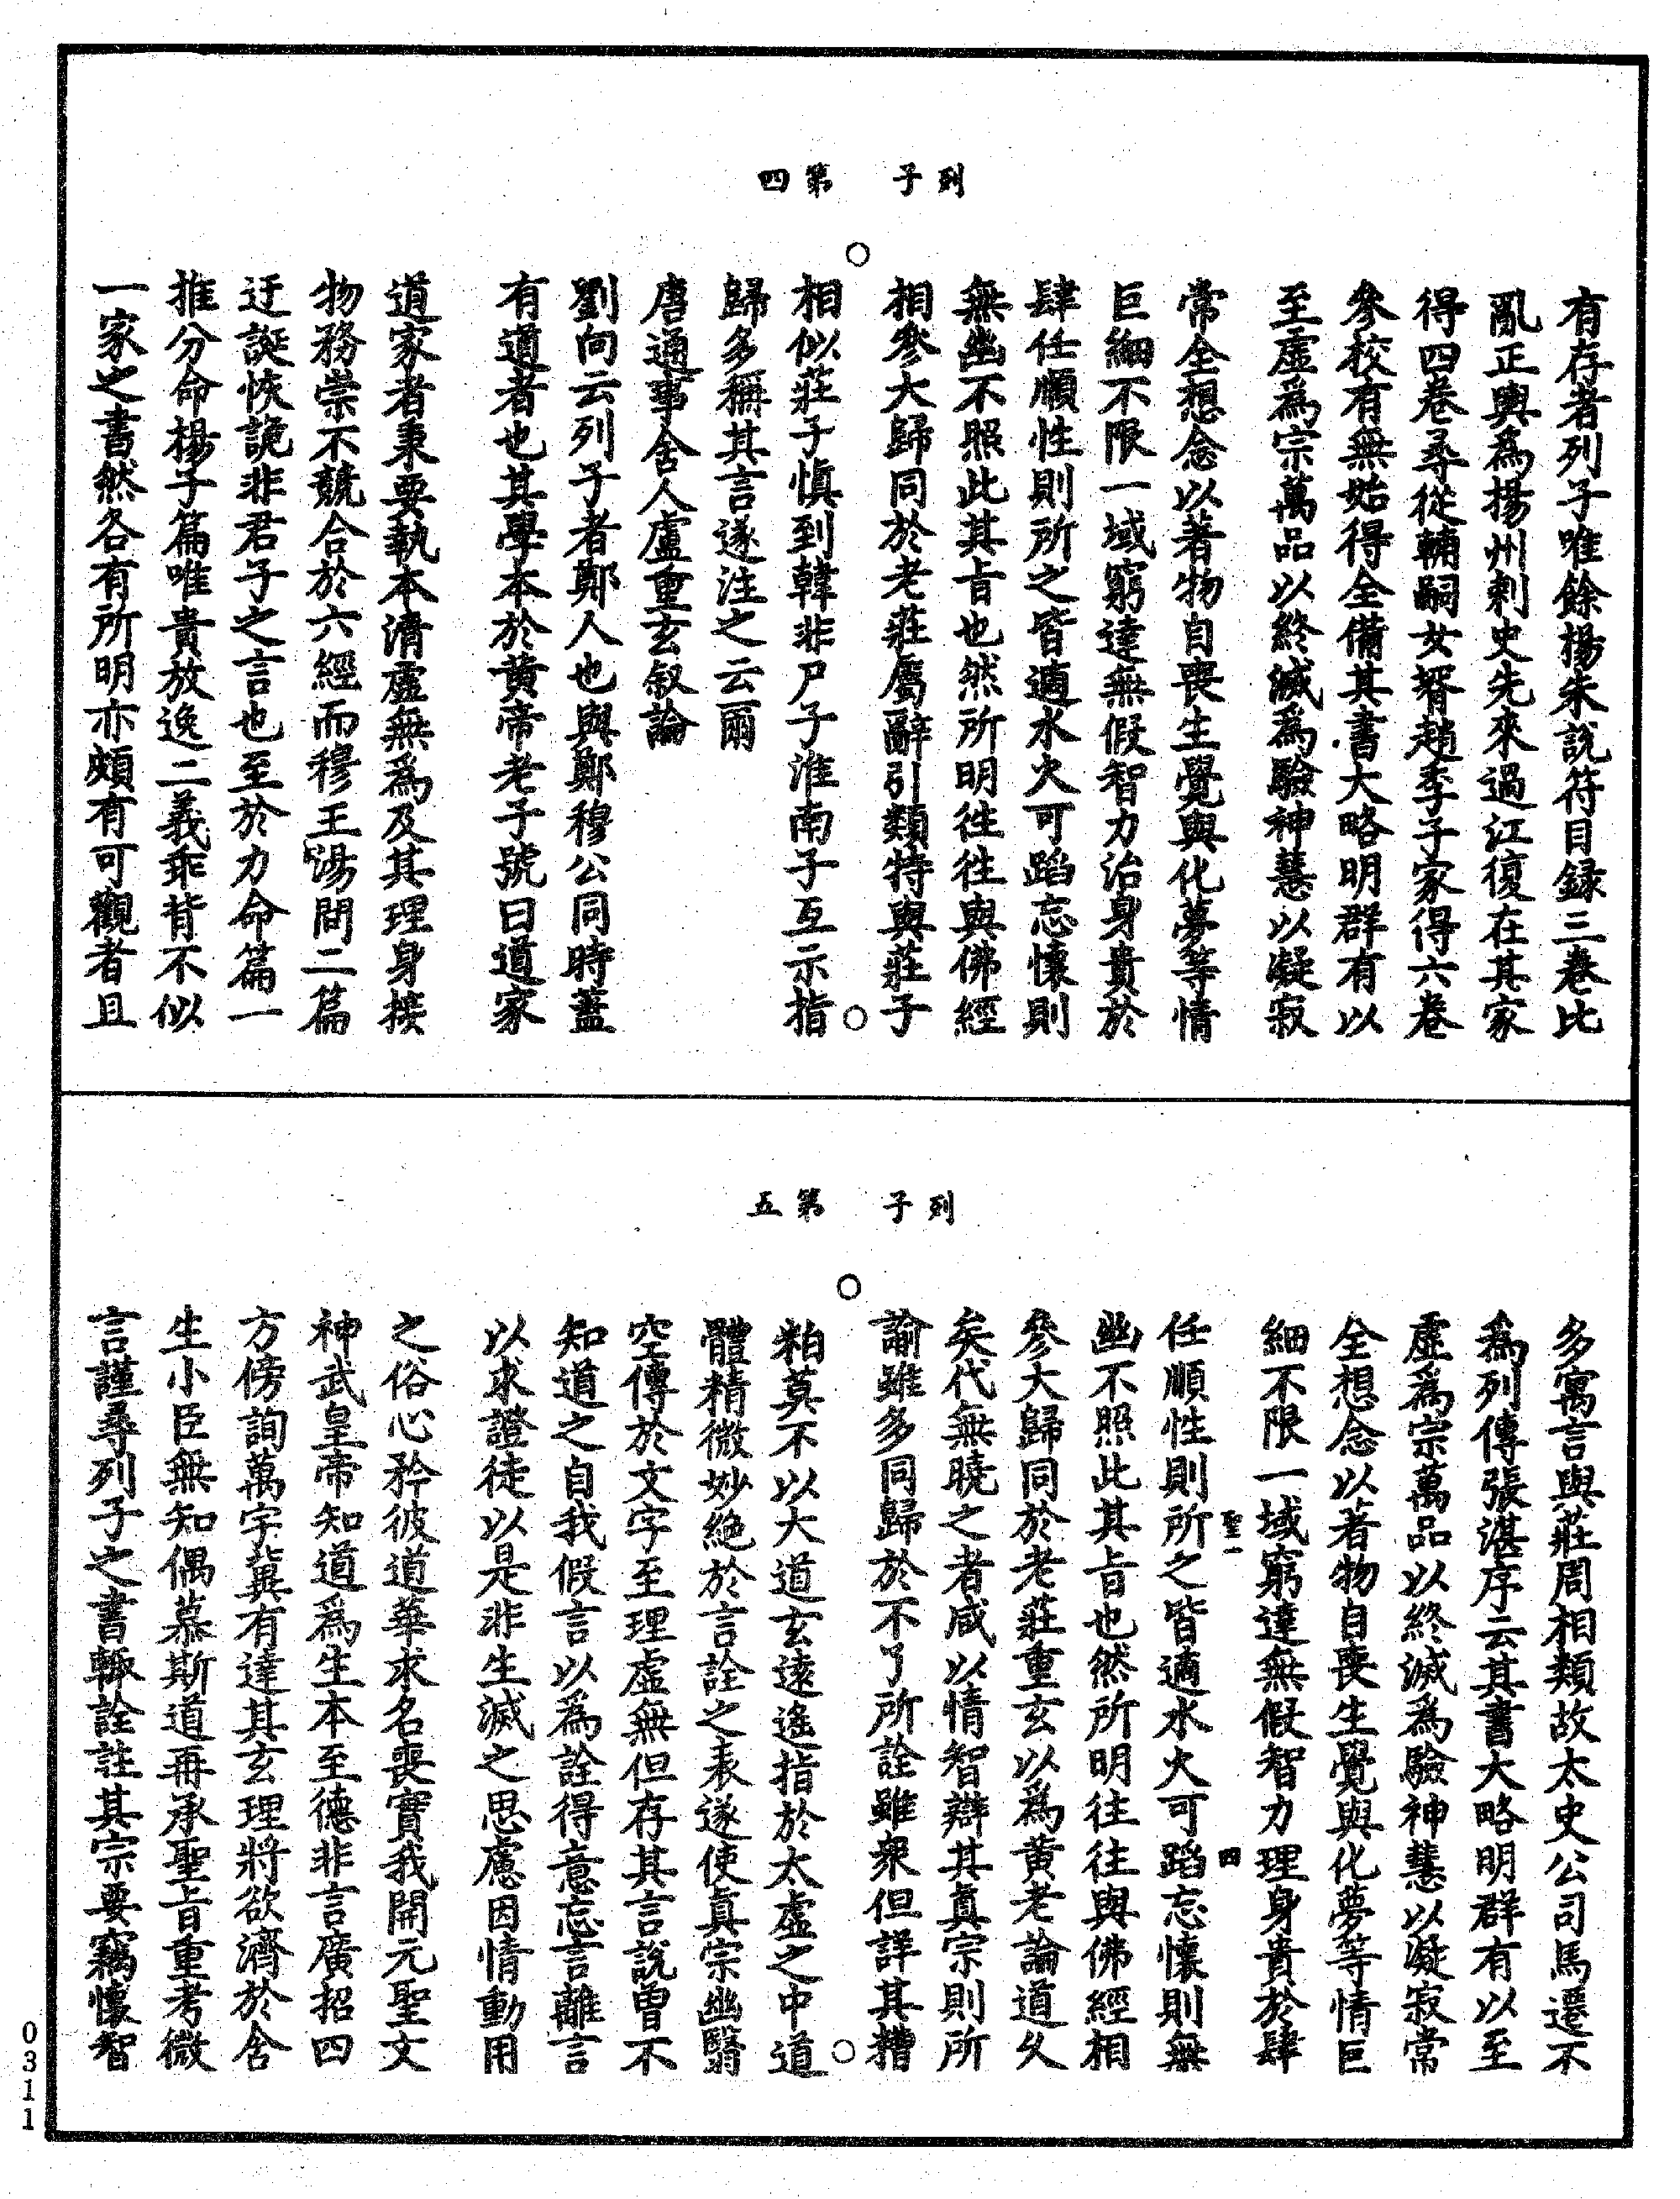 列子　第四
有存者列子唯餘楊朱說符目録三卷比
亂正輿爲揚州刺史先來過江復在其家
得四卷尋從輔嗣女壻趙季子家得六卷
參校有無始得全備其書大略明群有以
至虛爲宗萬品以終滅爲驗神慧以凝寂
常全想念以著物自喪生覺與化夢等情
巨細不限一域窮達無假智力治身貴於
肆任順性則所之皆適水火可蹈忘懷則
無幽不照此其旨也然所明往往與佛經
相參大歸同於老莊屬辭引類特與莊子
相似莊子愼到韓非尸子淮南子互示指
歸多稱其言遂注之云爾
唐通事舍人盧重玄叙論
劉向云列子者鄭人也與鄭穆公同時蓋
有道者也其學本於黄帝老子號曰道家
道家者秉要執本清虛無爲及其理身接
物務崇不競合於六經而穆王湯問二篇
迂誕恢詭非君子之言也至於力命篇一
推分命楊子篇唯貴放逸二義乖背不似
一家之書然各有所明亦頗有可觀者且
列子　第五
多寓言與莊周相類故太史公司馬遷不
爲列傳張湛序云其書大略明群有以至
虛爲宗萬品以終滅爲驗神慧以凝寂常
全想念以著物自喪生覺與化夢等情巨
細不限一域窮達無假智力理身貴於肆
聖一　四
任順性則所之皆適水火可蹈忘懷則無
幽不照此其旨也然所明往往與佛經相
參大歸同於老莊重玄以爲黄老論道久
矣代無曉之者咸以情智辯其真宗則所
諭雖多同歸於不了所詮雖衆但詳其糟
粕莫不以大道玄遠遙指於太虛之中道
體精微妙絶於言詮之表遂使真宗幽翳
空傳於文字至理虛無但存其言說曾不
知道之自我假言以爲詮得意忘言離言
以求證徒以是非生滅之思慮因情動用
之俗心矜彼道華求名喪實我開元聖文
神武皇帝知道爲生本至德非言廣招四
方傍詢萬字冀有達其玄理將欲濟於含
生小臣無知偶慕斯道再承聖旨重考微
言謹尋列子之書輙詮註其宗要竊懷智
0311